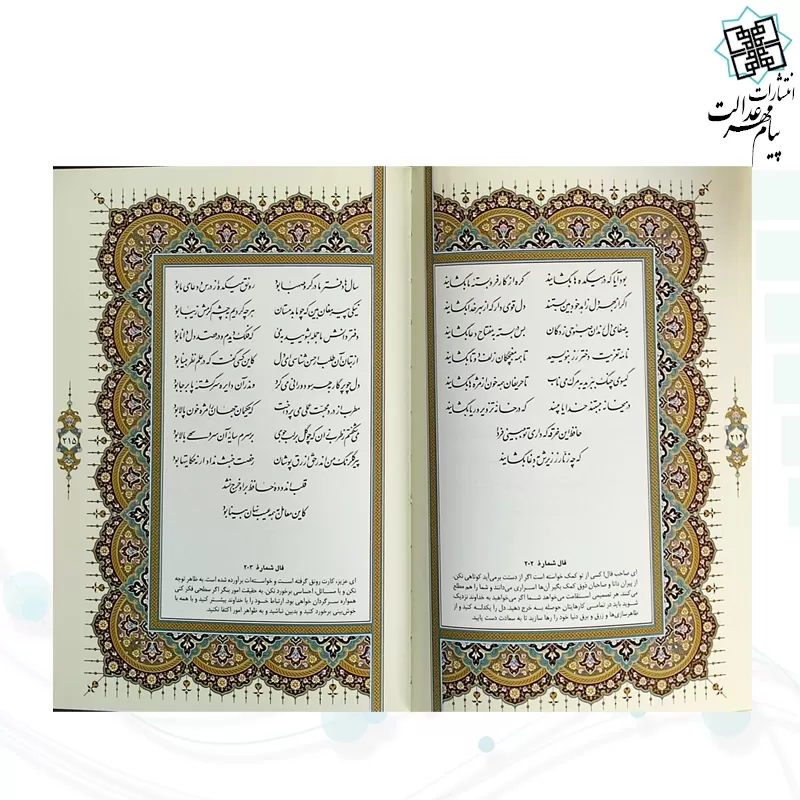 انتشارات
پیام مهر عدالت
بود آیا که در میکده ها بگشایند گره از کار فروبسته ما بگشایند
اگر از بهر دل زاهد خودبین بستند دل قوی دار که از بهر خدا بگشایند
به صفای دل رندان صبوحی زدگان بس در بسته به مفتاح دعا بگشایند
نامه تعزیت دختر رز بنویسید تا همه مغبچگان زلف دوتا بگشایند
گیسوی چنگ ببرید به مرگ می ناب تا حریفان همه خون از مژه ها بگشایند
در میخانه ببستند خدایا مپسند که در خانه تزویر و ریا بگشایند
حافظ این خرقه که داری تو ببینی فردا
که چه زنار ز زیرش به دغا بگشایند
فال شمارهٔ ۲۰۲
ای صاحب فال! کسی از تو کمک خواسته است اگر از دستت برمی‌آید کوتاهی نکن.
از پیران دانا و صاحبان ذوق کمک بگیر آن‌ها اسراری می‌دانند و شما را هم مطلع
می‌کنند. هر تصمیمی استقامت می‌خواهد شما اگر می‌خواهید به خداوند نزدیک
شوید باید در تمامی کارهایتان حوصله به خرج دهید. دل را یکدله کنید و از
ظاهرسازی‌ها و زرق و برق دنیا خود را رها سازید تا به سعادت دست یابید.
۲۱۴
سال ها دفتر ما در گرو صهبا بود رونق میکده از درس و دعای ما بود
نیکی پیر مغان بین که چو ما بدمستان هر چه کردیم به چشم کرمش زیبا بود
دفتر دانش ما جمله بشویید به می که فلک دیدم و در قصد دل دانا بود
از بتان آن طلب ار حسن شناسی ای دل کاین کسی گفت که در علم نظر بینا بود
دل چو پرگار به هر سو دورانی می کرد و اندر آن دایره سرگشته پابرجا بود
مطرب از درد محبت عملی می پرداخت که حکیمان جهان را مژه خون پالا بود
می شکفتم ز طرب زان که چو گل بر لب جوی بر سرم سایه آن سرو سهی بالا بود
پیر گلرنگ من اندر حق ازرق پوشان رخصت خبث نداد ار نه حکایت ها بود
قلب اندوده حافظ بر او خرج نشد
کاین معامل به همه عیب نهان بینا بود
فال شمارهٔ ۲۰۳
ای عزیز، کارت رونق گرفته است و خواسته‌ات برآورده شده است. به ظاهر توجه
نکن و با مسائل، احساسی برخورد نکن. به حقیقت امور بنگر اگر سطحی فکر کنی
همواره سرگردان خواهی بود. ارتباط خود را با خداوند بیشتر کنید و با همه با
خوش‌بینی برخورد کنید و بدبین نباشید و به ظواهر امور اکتفا نکنید.
۲۱۵